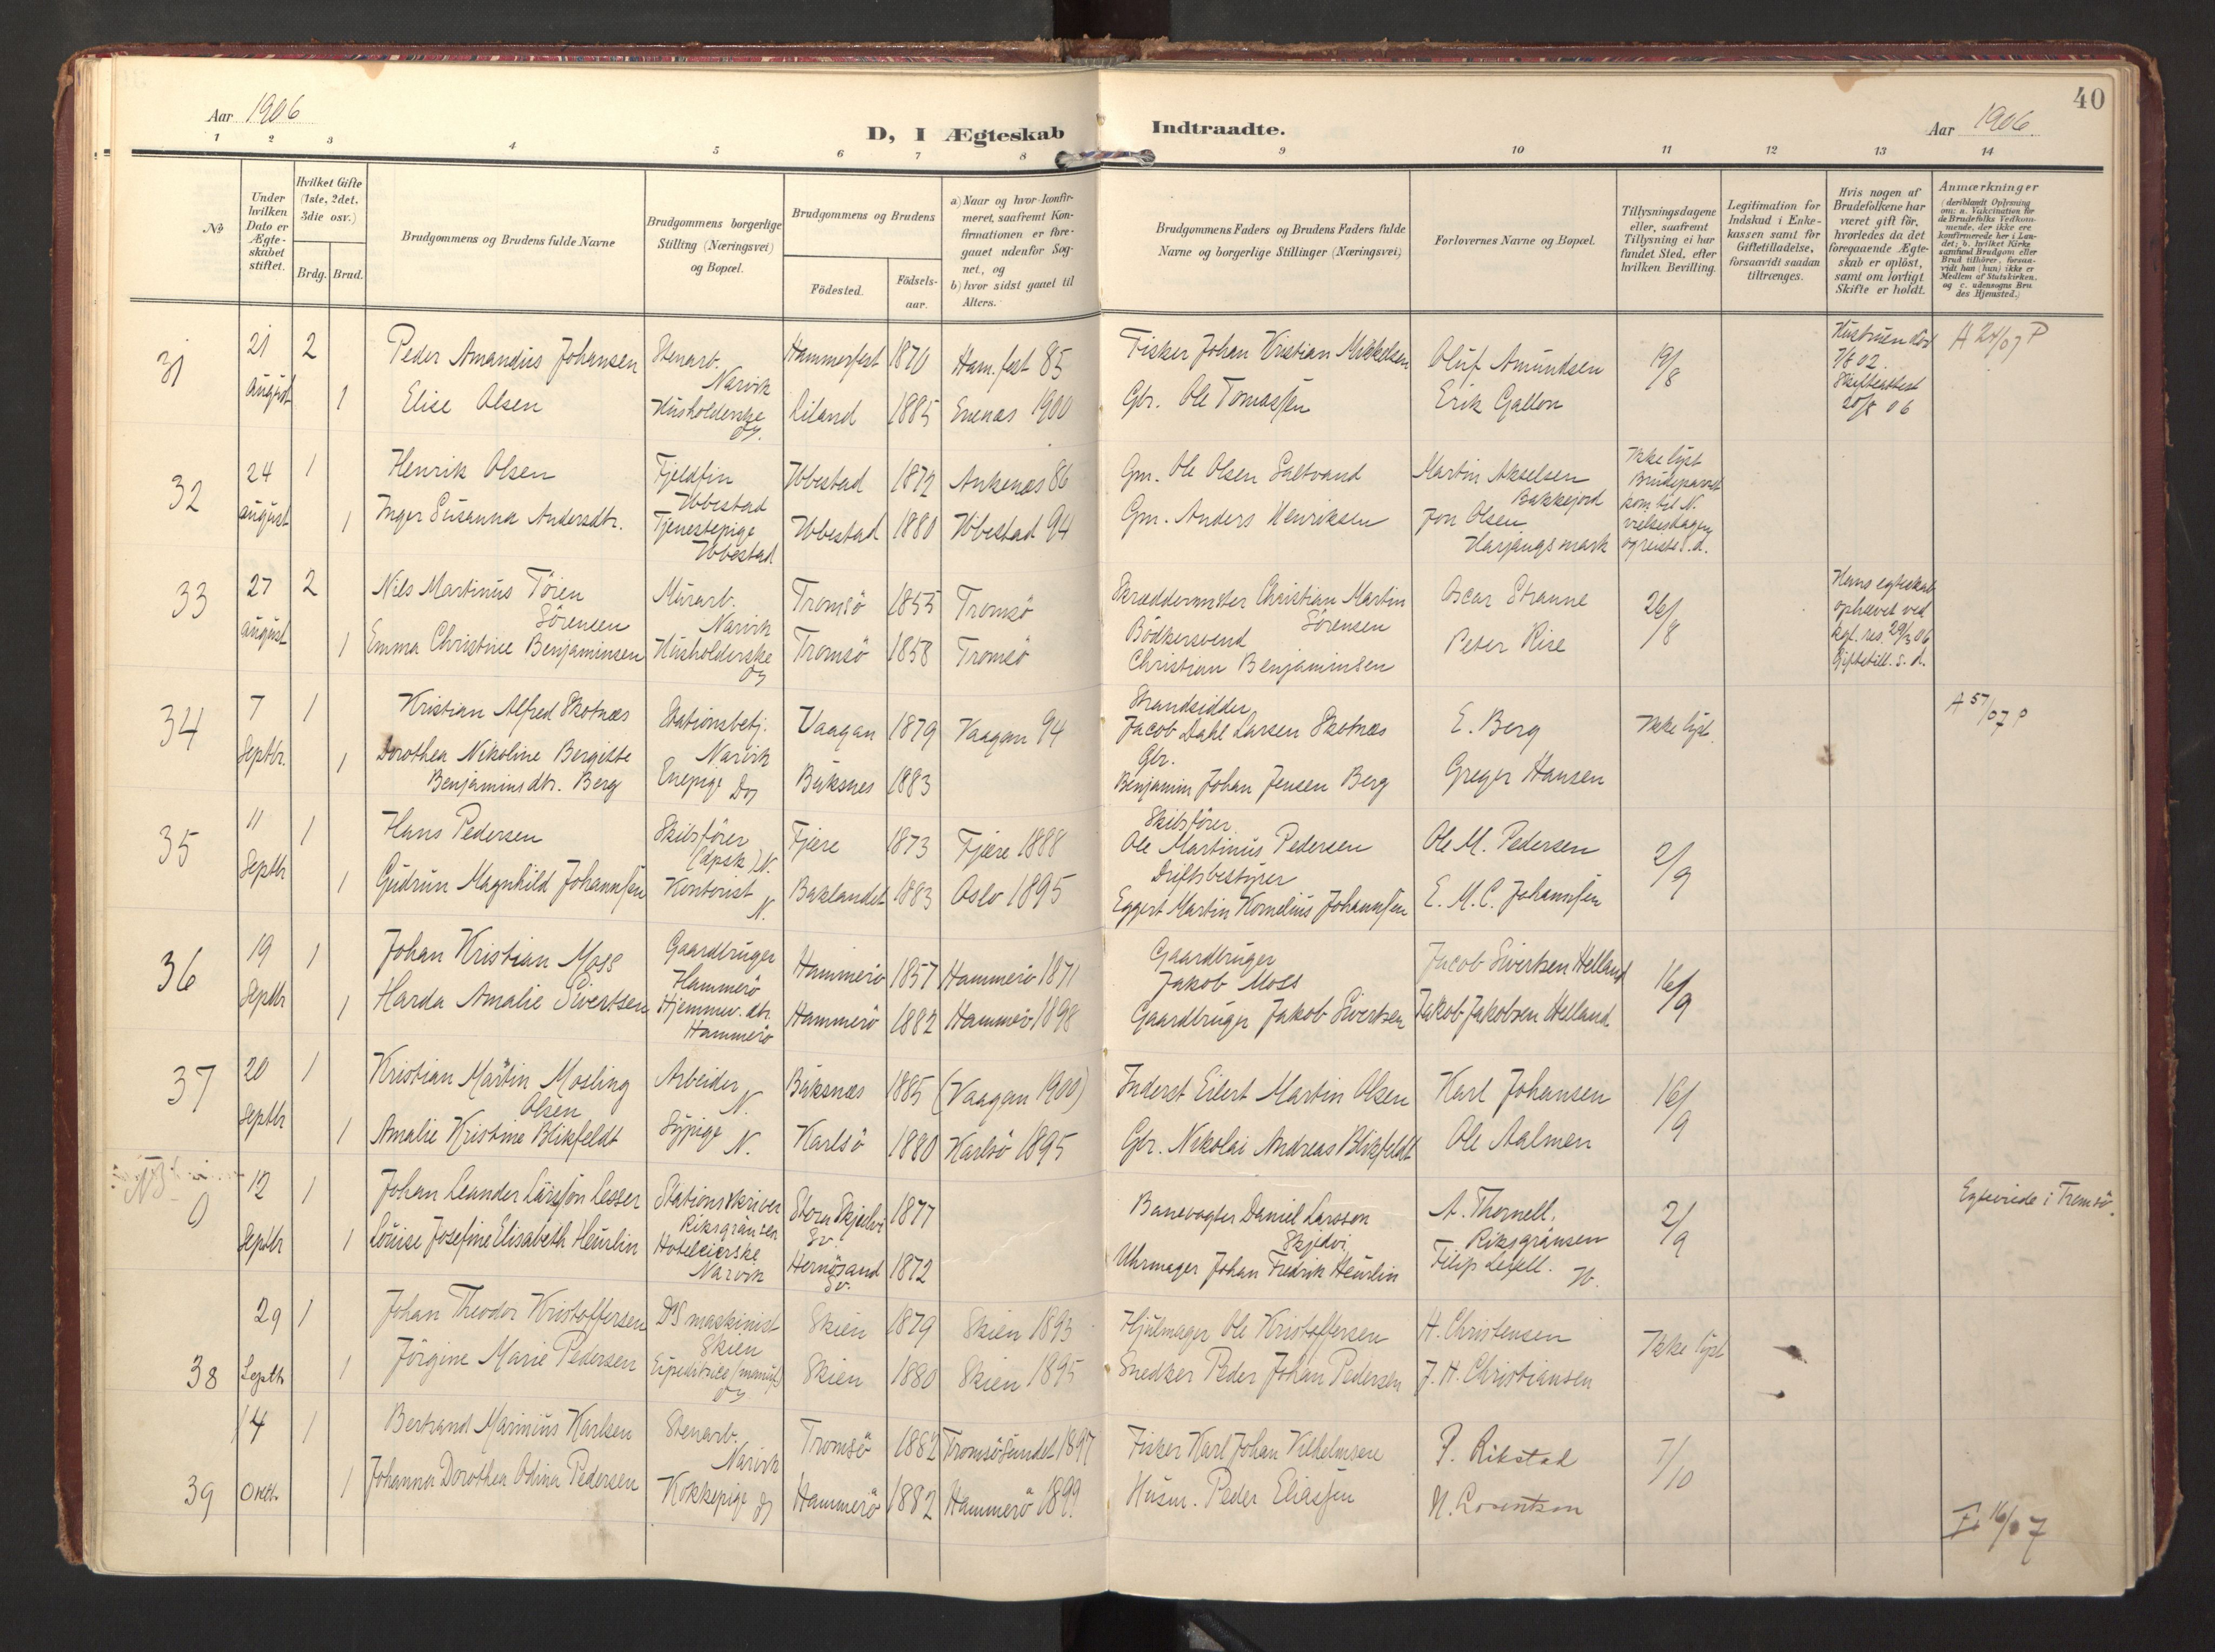 40
Aar 1906
D, I Ægteskab Indtraadte.
Aar 1906.
1 2 3 4 5 6 7 8 9 10 11 12 13 14
No
Under hvilken Dato er Ægteskabet stiftet.
Hvilket Gifte (1ste, 2det, 3die osv.)
Brdg. Brud.
Brudgommens og Brudens fulde Navne
Brudgommens borgerlige Stilling (Næringsvei) og Bopæl.
Brudgommens og Brudens
Födested. Födsels-aar.
a) Naar og hvor konfirmeret, saafremt Konfirmationen er foregaaet udenfor Sognet, og
b) hvor sidst gaaet til Alters.
Brudgommens Faders og Brudens Faders fulde Navne og borgerlige Stillinger (Næringsvei)
Forlovernes Navne og Bopæl.
Tillysningsdagene eller, saafremt Tillysning ei har fundet Sted, efter hvilken Bevilling.
Legitimation for Indskud i Enkekassen samt for Giftetilladelse, forsaavidt saadan tiltrænges.
Hvis nogen af Brudefolkene har været gift för, hvorledes da det foregaaende Ægteskab er oplöst, samt om lovligt Skifte er holdt.
Anmærkninger (deriblandt Oplysning om: a. Vakcination for de Brudefolks Vedkommende, der ikke ere konfirmerede her i Landet; b. hvilket Kirkesamfund Brudgom eller Brud tilhörer, forsaavidt han (hun) ikke er Medlem af Statskirken. og c. udensogns Brudes Hjemsted.)
31 21 august 2 Peder Amandus Johansen Stenarb. Narvik Hammerfest 1870 Ham.fest 85 Fisker Johan Kristian Mikkelsen Oluf Amundsen 19/8 Hustruen död 7/8 02. Skifteattest 20/8 06 A 24/07 P
1 Elise Olsen Husholderske Ds. Liland 1885 Evenæs 1900 Gbr. Ole Tomassen Erik Gallon
32 24 august 1 Henrik Olsen Fjeldfin Ibbestad Ibbestad 1872 Ankenæs 86 Gm. Ole Olsen Saltvand Martin Akselsen Bakkejord Ikke lyst Brudeparret kom til N. vielsesdagen og reiste s.d.
1 Inger Susanna Andersdtr. Tjenestepige Ibbestad Ibbestad 1880 Ibbestad 94 Gm. Anders Henriksen Jon Olsen Harjangsmark
33 27 august 2 Nils Martinus Töien Sörensen Murarb. Narvik Tromsö 1855 Tromsö Skræddermster Christian Martin Sörensen Oscar Stranne 26/8 Hans egteskab ophævet ved kgl. res. 29/3 06 Giftetill. s. d.
1 Emma Christine Benjaminsen Husholderske Ds Tromsö 1858 Tromsö Bödkersvend Christian Benjaminsen Peter Rise
34 7 Septbr. 1 Kristian Alfred Skotnæs Stationsbetj. Narvik Vaagan 1879 Vaagan 94 Strandsidder Jacob Dahl Larsen Skotnæs E. Berg Ikke lyst. A 57/07 P
1 Dorothea Nikoline Bergitte Benjaminsdtr. Berg Enepige Ds Buksnes 1883 Gbr. Benjamin Johan Jensen Berg Greger Hansen
35 11 Septbr 1 Hans Pedersen Skibsförer (dpsk) N. Fjære 1873 Fjære 1888 Skibsförer Ole Martinus Pedersen Ole M. Pedersen 2/9
1 Gudrun Magnhild Johannssen Kontorist N. Baklandet 1883 Oslo 1895 Driftsbestyrer Eggert Martin Kornelius Johannssen E. M. C. Johannssen
36 19 Septbr 1 Johan Kristian Moss Gaardbruger Hammerö Hammerö 1857 Hammerö 1871 Gaardbruger Jakob Moss Jacob Sivertsen Helland 16/9
1 Harda Amalie Sivertsen Hjemmev. dtr. Hammerö Hammerö 1882 Hammerö 1898 Gaardbruger Jakob Sivertsen Jakob Jakobsen Helland
37 20 Septbr 1 Kristian Martin Mosling Olsen Arbeider N. Buksnæs 1885 (Vaagan 1900) Inderst Eilert Martin Olsen Karl Johansen 16/9
1 Amalie Kristine Blikfeldt Sypige N. Karlsö 1880 Karlsö 1895 Gbr. Nikolai Andreas Blikfeldt Ole Aalmen
NB 0 12 Septbr 1 Johan Leander Larsson Lesser Stationsskriver Riksgränsen Stora Skjedvi Sv. 1877 Banevogter Daniel Larsson Skjedvi A. Thornell. Riksgränsen 2/9 Egteviede i Tromsö.
1 Louise Josefine Elisabeth Heurlin Hoteleierske Narvik Hernösand Sv. 1872 Uhrmager Johan Fredrik Heurlin Filip Lesell. N.
38 29 Septb 1 Johan Theodor Kristoffersen DS maskinist Skien Skien 1879 Skien 1893 Hjulmager Ole Kristoffersen H. Christensen Ikke lyst
1 Jörgine Marie Pedersen Expeditrice (manuf.) Ds Skien 1880 Skien 1895 Snedker Peder Johan Pedersen J. H. Christiansen
39 14 Oktb. 1 Bertrand Marinius Karlsen Stenarb. Narvik Tromsö 1882 Tromsösundet 1897 Fisker Karl Johan Vilhelmsen P. Rikstad 7/10
1 Johanna Dorothea Odina Pedersen Kokkepige Ds Hammerö 1882 Hammerö 1899 Husm. Peder Eliassen N. Lorentzon 16/07